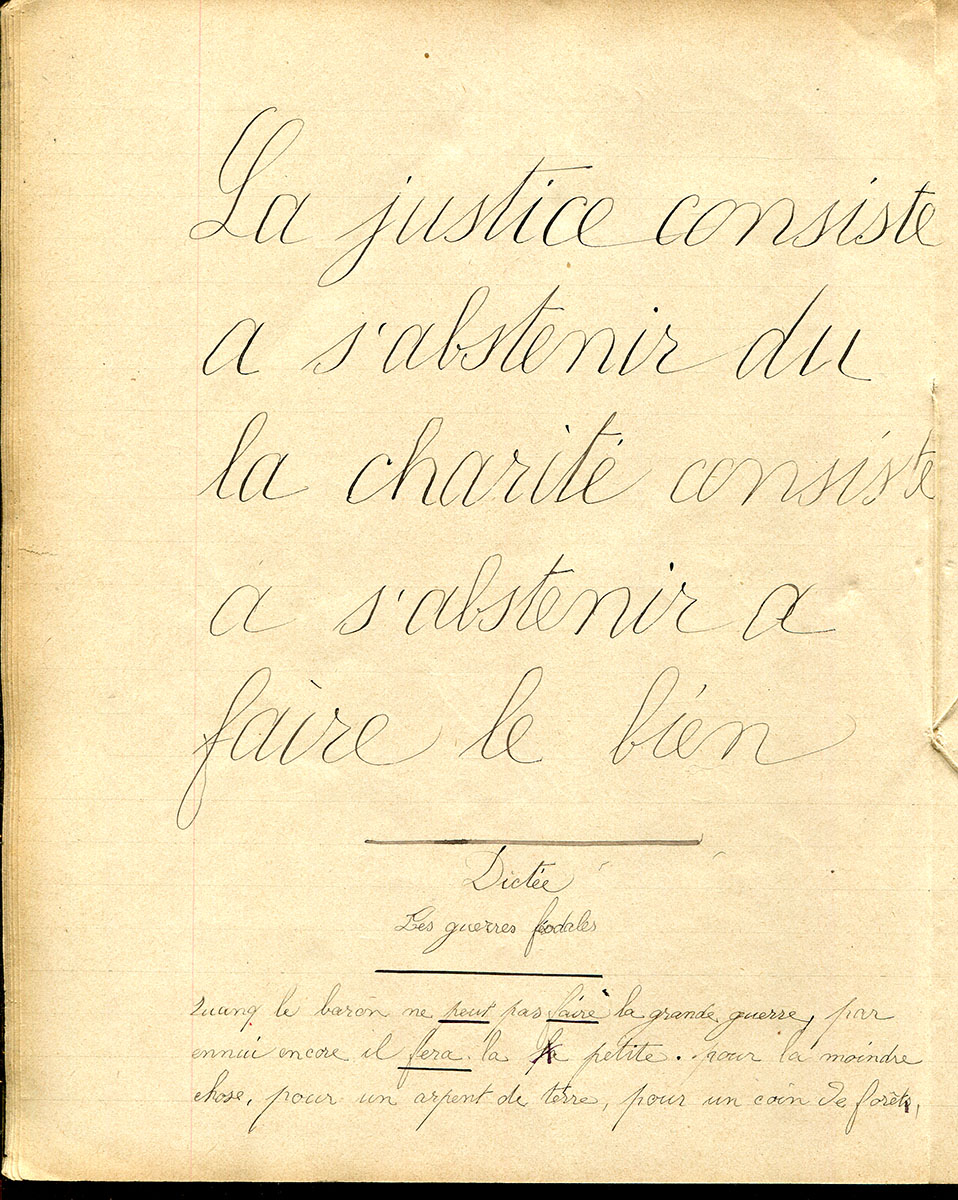 La justice consiste
a s'abstenir du
la charité consiste
à s'abstenir a
faire le bien
Dictée
Les guerres féodales
Quang le baron ne peut pas faire la grande guerre, par
ennui encore il fera la petite. pour la moindre
chose, pour un arpent de terre, pour un coin de forêt,